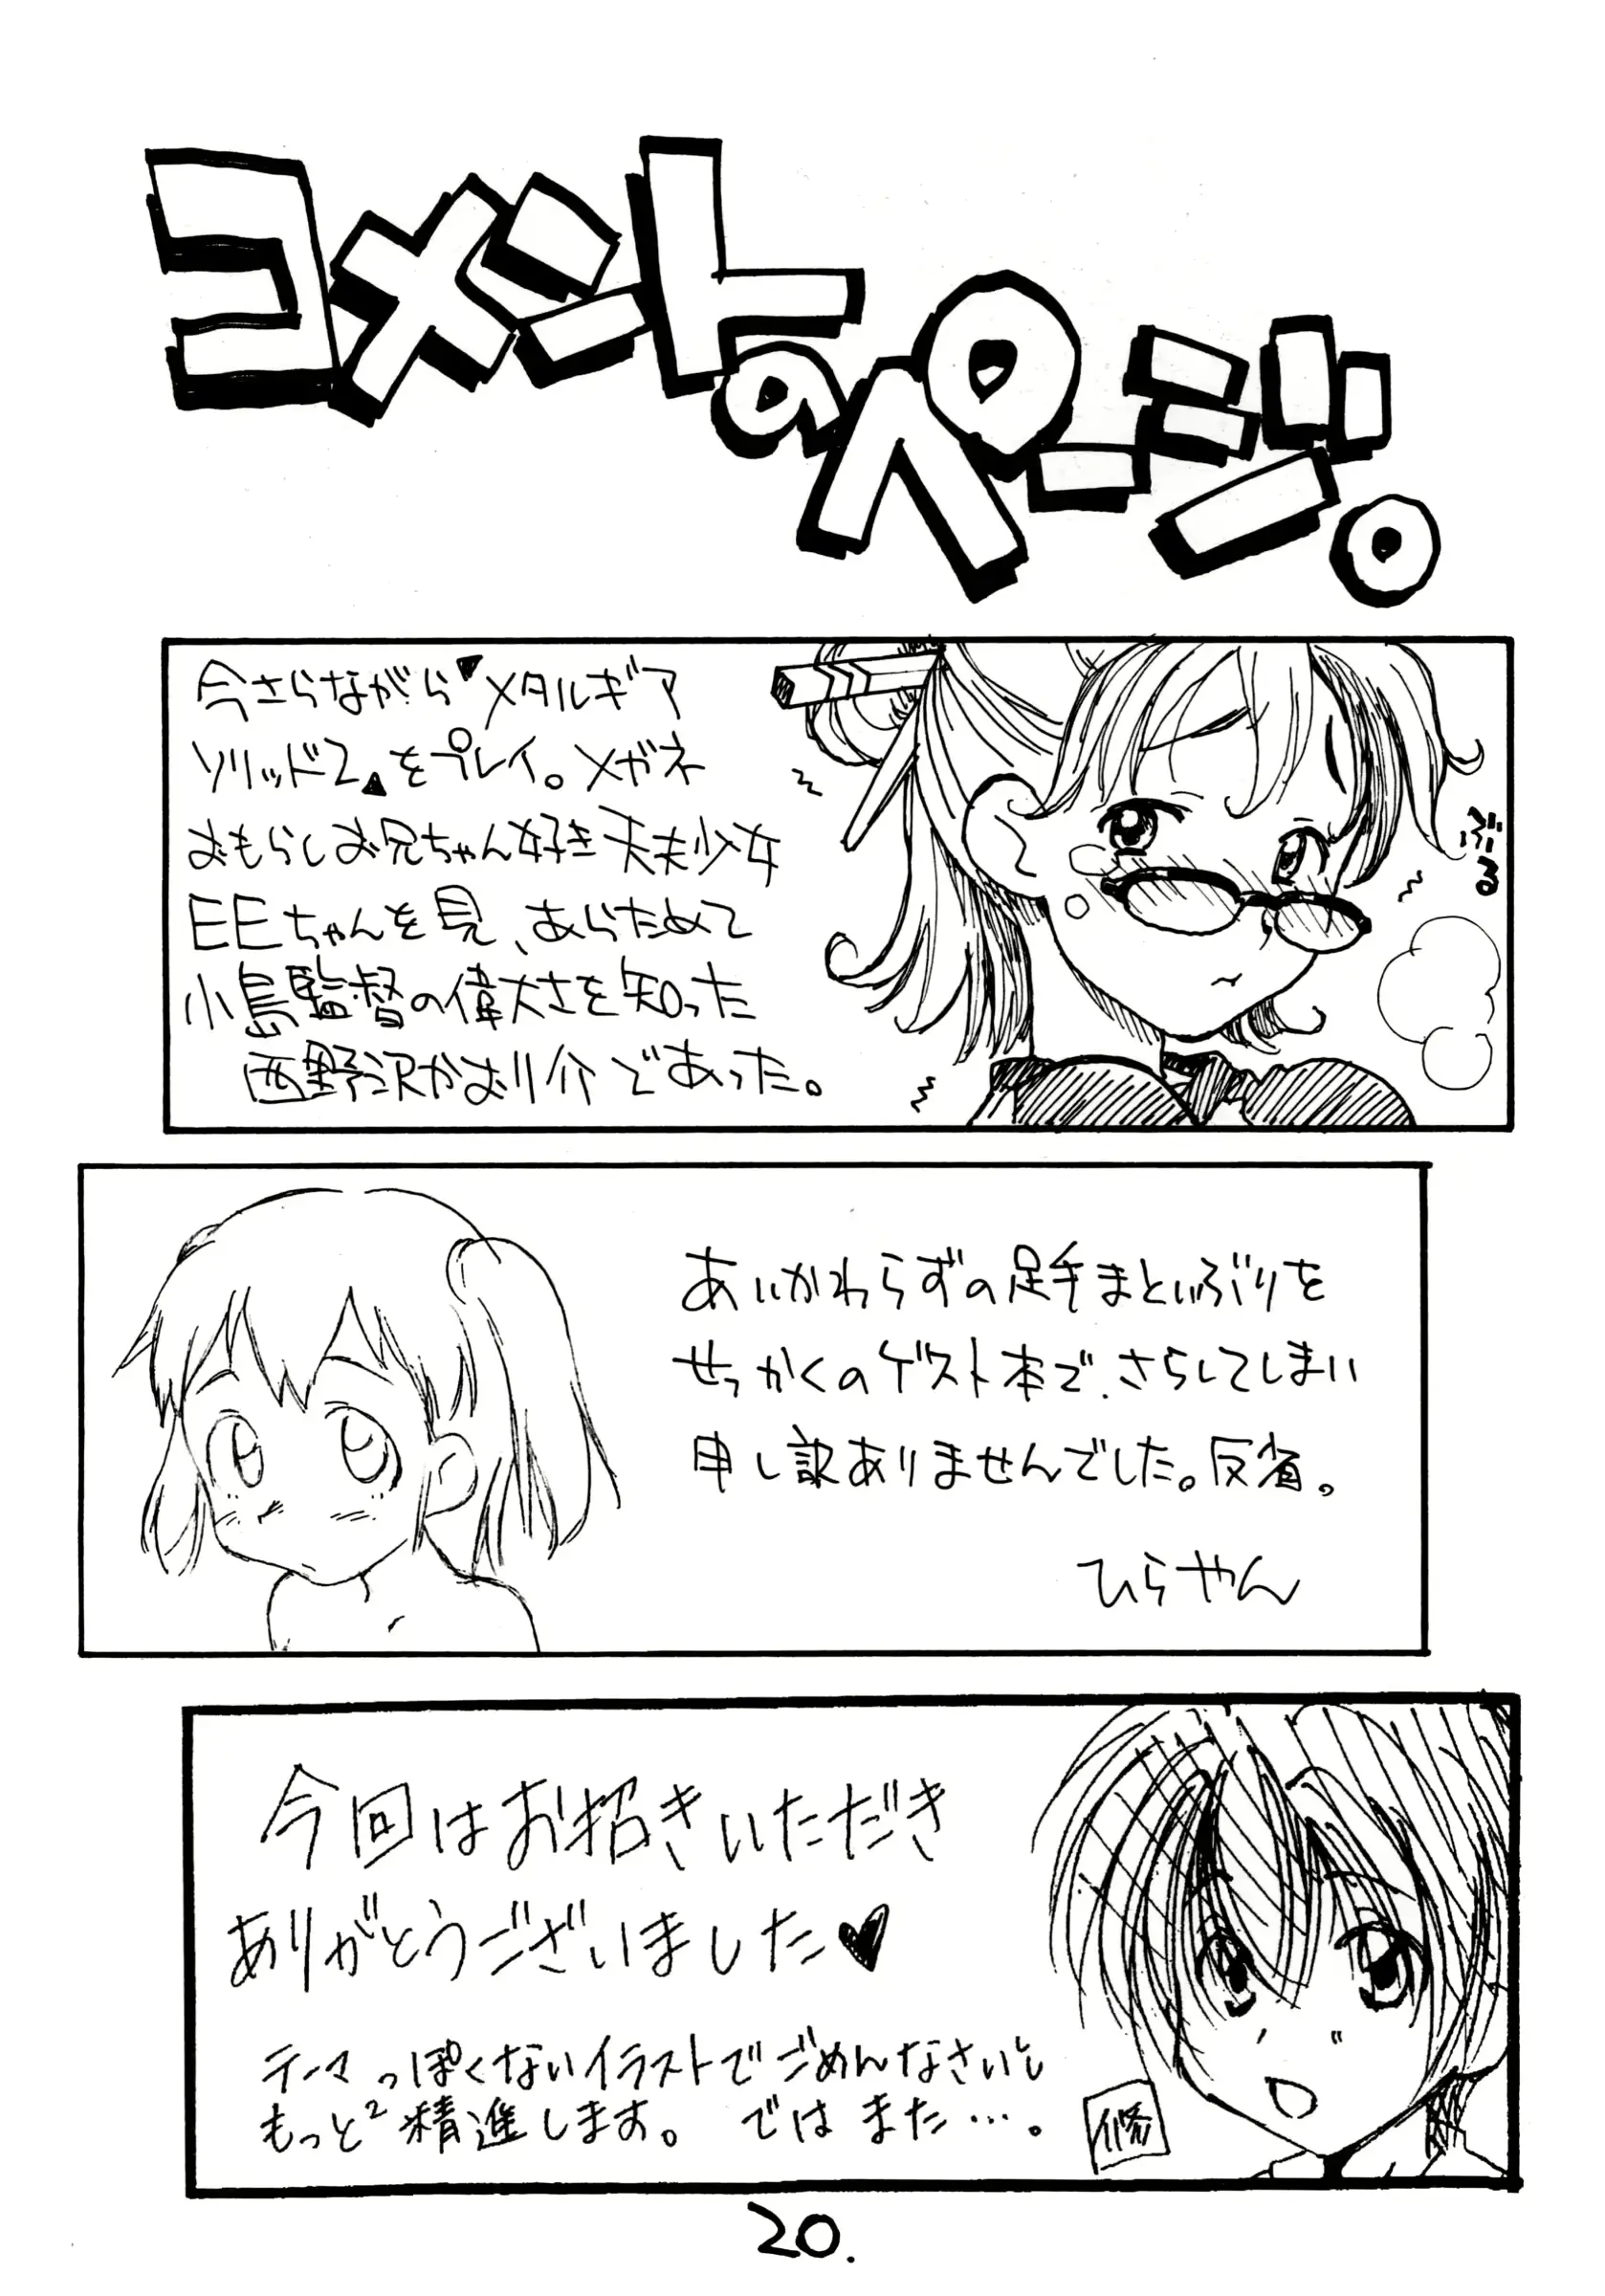 コメントのページ。
今さらながら▼メタルギア
ソリッド2▲をプレイ。メガネ
おもらしお兄ちゃん好き天才少女
EEちゃんを見、あらためて
小島監督の偉大さを知った
西野沢かおり介であった。
ぶる
あいかわらずの足手まといぶりを
せっかくのゲスト本で、さらしてしまい
申し訳ありませんでした。反省。
ひらやん
今回はお招きいただき
ありがとうございました♥
テーマっぽくないイラストでごめんなさい
もっと²精進します。ではまた…。
修
20.